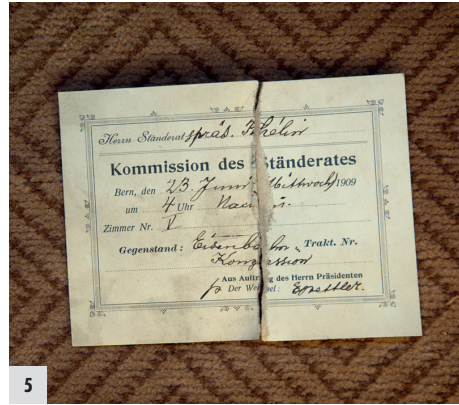 Herrn Ständeratspräs. Thélin
Kommission des Ständerates
Bern, den 23. Juni (Mittwoch) 1909
um 4 Uhr Nachm.
Zimmer Nr. V
Gegenstand: Eisenbahn- Trakt. Nr.
Konzession
Aus Auftrag des Herrn Präsidenten
Der Weibel:
5